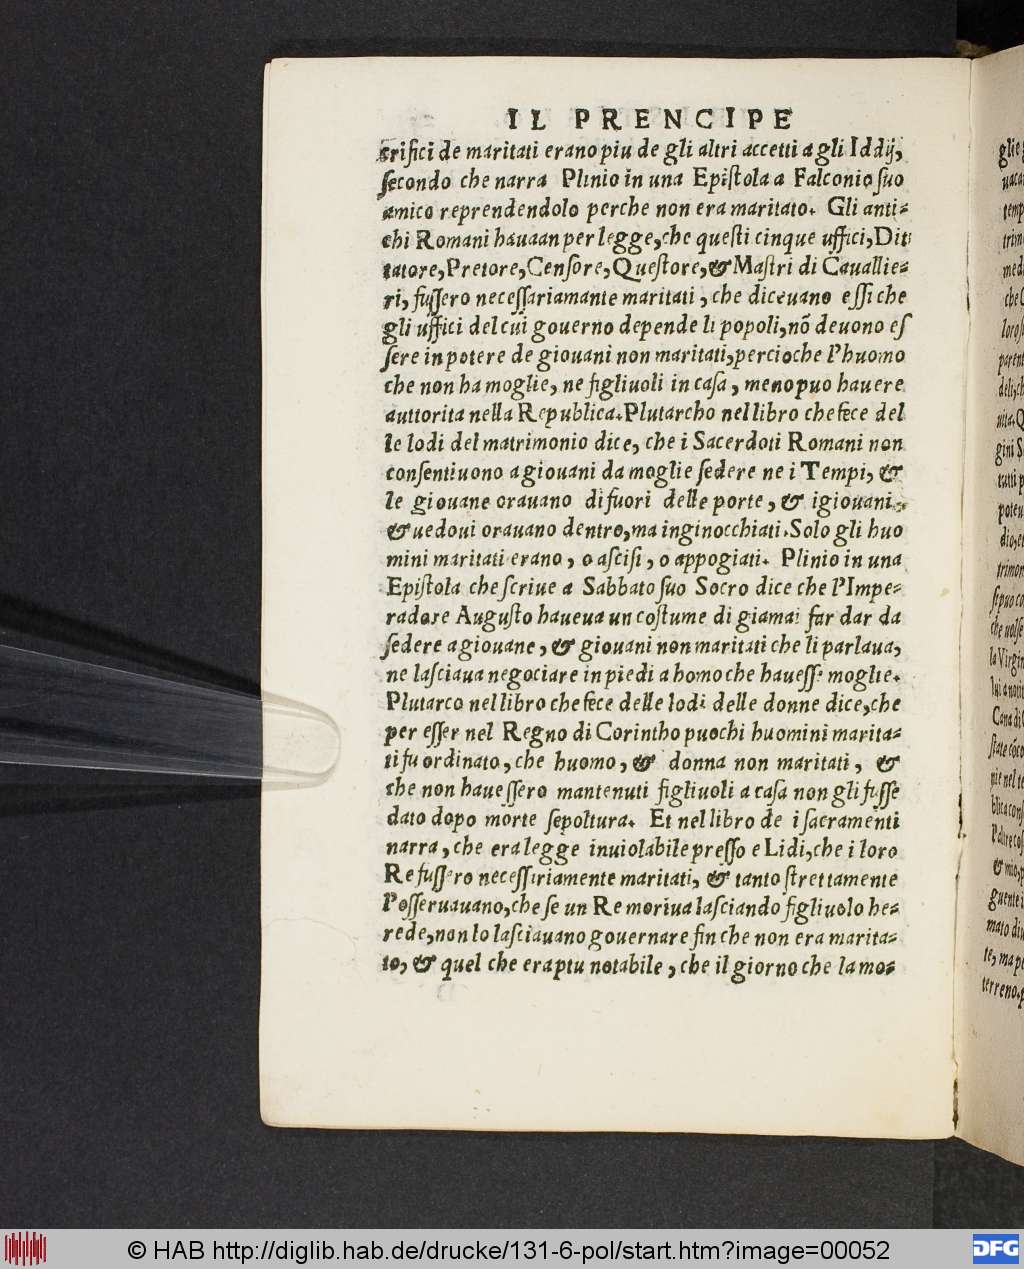 IL PRENCIPE
crifici de maritati erano piu de gli altri accetti a gli Iddij,
secondo che narra Plinio in una Epistola a Falconio suo
amico reprendendolo perche non era maritato. Gli anti-
chi Romani havaan per legge, che questi cinque uffici, Dit
tatore, Pretore, Censore, Questore, & Mastri di Cavallie-
ri, fussero necessariamante maritati, che diceuano essi che
gli uffici del cui gouerno depende li popoli, nõ deuono es
sere in potere de giouani non maritati, percioche l'huomo
che non ha moglie, ne figliuoli in casa, meno puo hauere
auttorita nella Republica. Plutarcho nel libro che fece del
le lodi del matrimonio dice, che i Sacerdoti Romani non
consentiuono a giouani da moglie sedere ne i Tempi, &
le giouane orauano di fuori delle porte, & i giouani,
& uedoui orauano dentro, ma inginocchiati. Solo gli huo
mini maritati erano, o ascisi, o appogiati. Plinio in una
Epistola che scriue a Sabbato suo Socro dice che l'Impe-
radore Augusto haueua un costume di giamai far dar da
sedere a giouane, & giouani non maritati che li parlaua,
ne lasciaua negociare in piedi a homo che hauesse moglie.
Plutarco nel libro che fece delle lodi delle donne dice, che
per esser nel Regno di Corintho puochi huomini marita-
ti fu ordinato, che huomo, & donna non maritati, &
che non hauessero mantenuti figliuoli a casa non gli fusse
dato dopo morte sepoltura. Et nel libro de i sacramenti
narra, che era legge inuiolabile presso e Lidi, che i loro
Re fussero necessiriamente maritati, & tanto strettamente
l'osseruauano, che se un Re moriua lasciando figliuolo he-
rede, non lo lasciauano gouernare fin che non era marita-
to, & quel che era piu notabile, che il giorno che la mo-
© HAB http://diglib.hab.de/drucke/131-6-pol/start.htm?image=00052
DFG